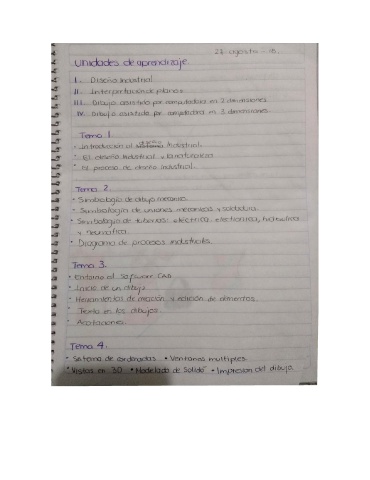 27 agosto - 18.
Unidades de aprendizaje.
I. Diseño Industrial
II. Interpretación de planos
III. Dibujo asistido por computadora en 2 dimensiones
IV. Dibujo asistido por computadora en 3 dimensiones.
Tema 1.
• Introducción al diseño Industrial.
• El diseño Industrial y la naturaleza
• El proceso de diseño Industrial.
Tema 2.
• Simbología de dibujo mecánico.
• Simbología de uniones mecánica y soldadura.
• Simbología de tuberías: eléctrica, electrónica, hidráulica
y neumática.
• Diagrama de procesos industriales.
Tema 3.
• Entorno al Software CAD
• Inicio de un dibujo
• Herramientas de creación y edición de elementos.
• Texto en los dibujos
• Acotaciones.
Tema 4.
• Sistema de coordenadas • Ventanas múltiples.
• Vistas en 3D • Modelado de Solido • Impresión del dibujo.